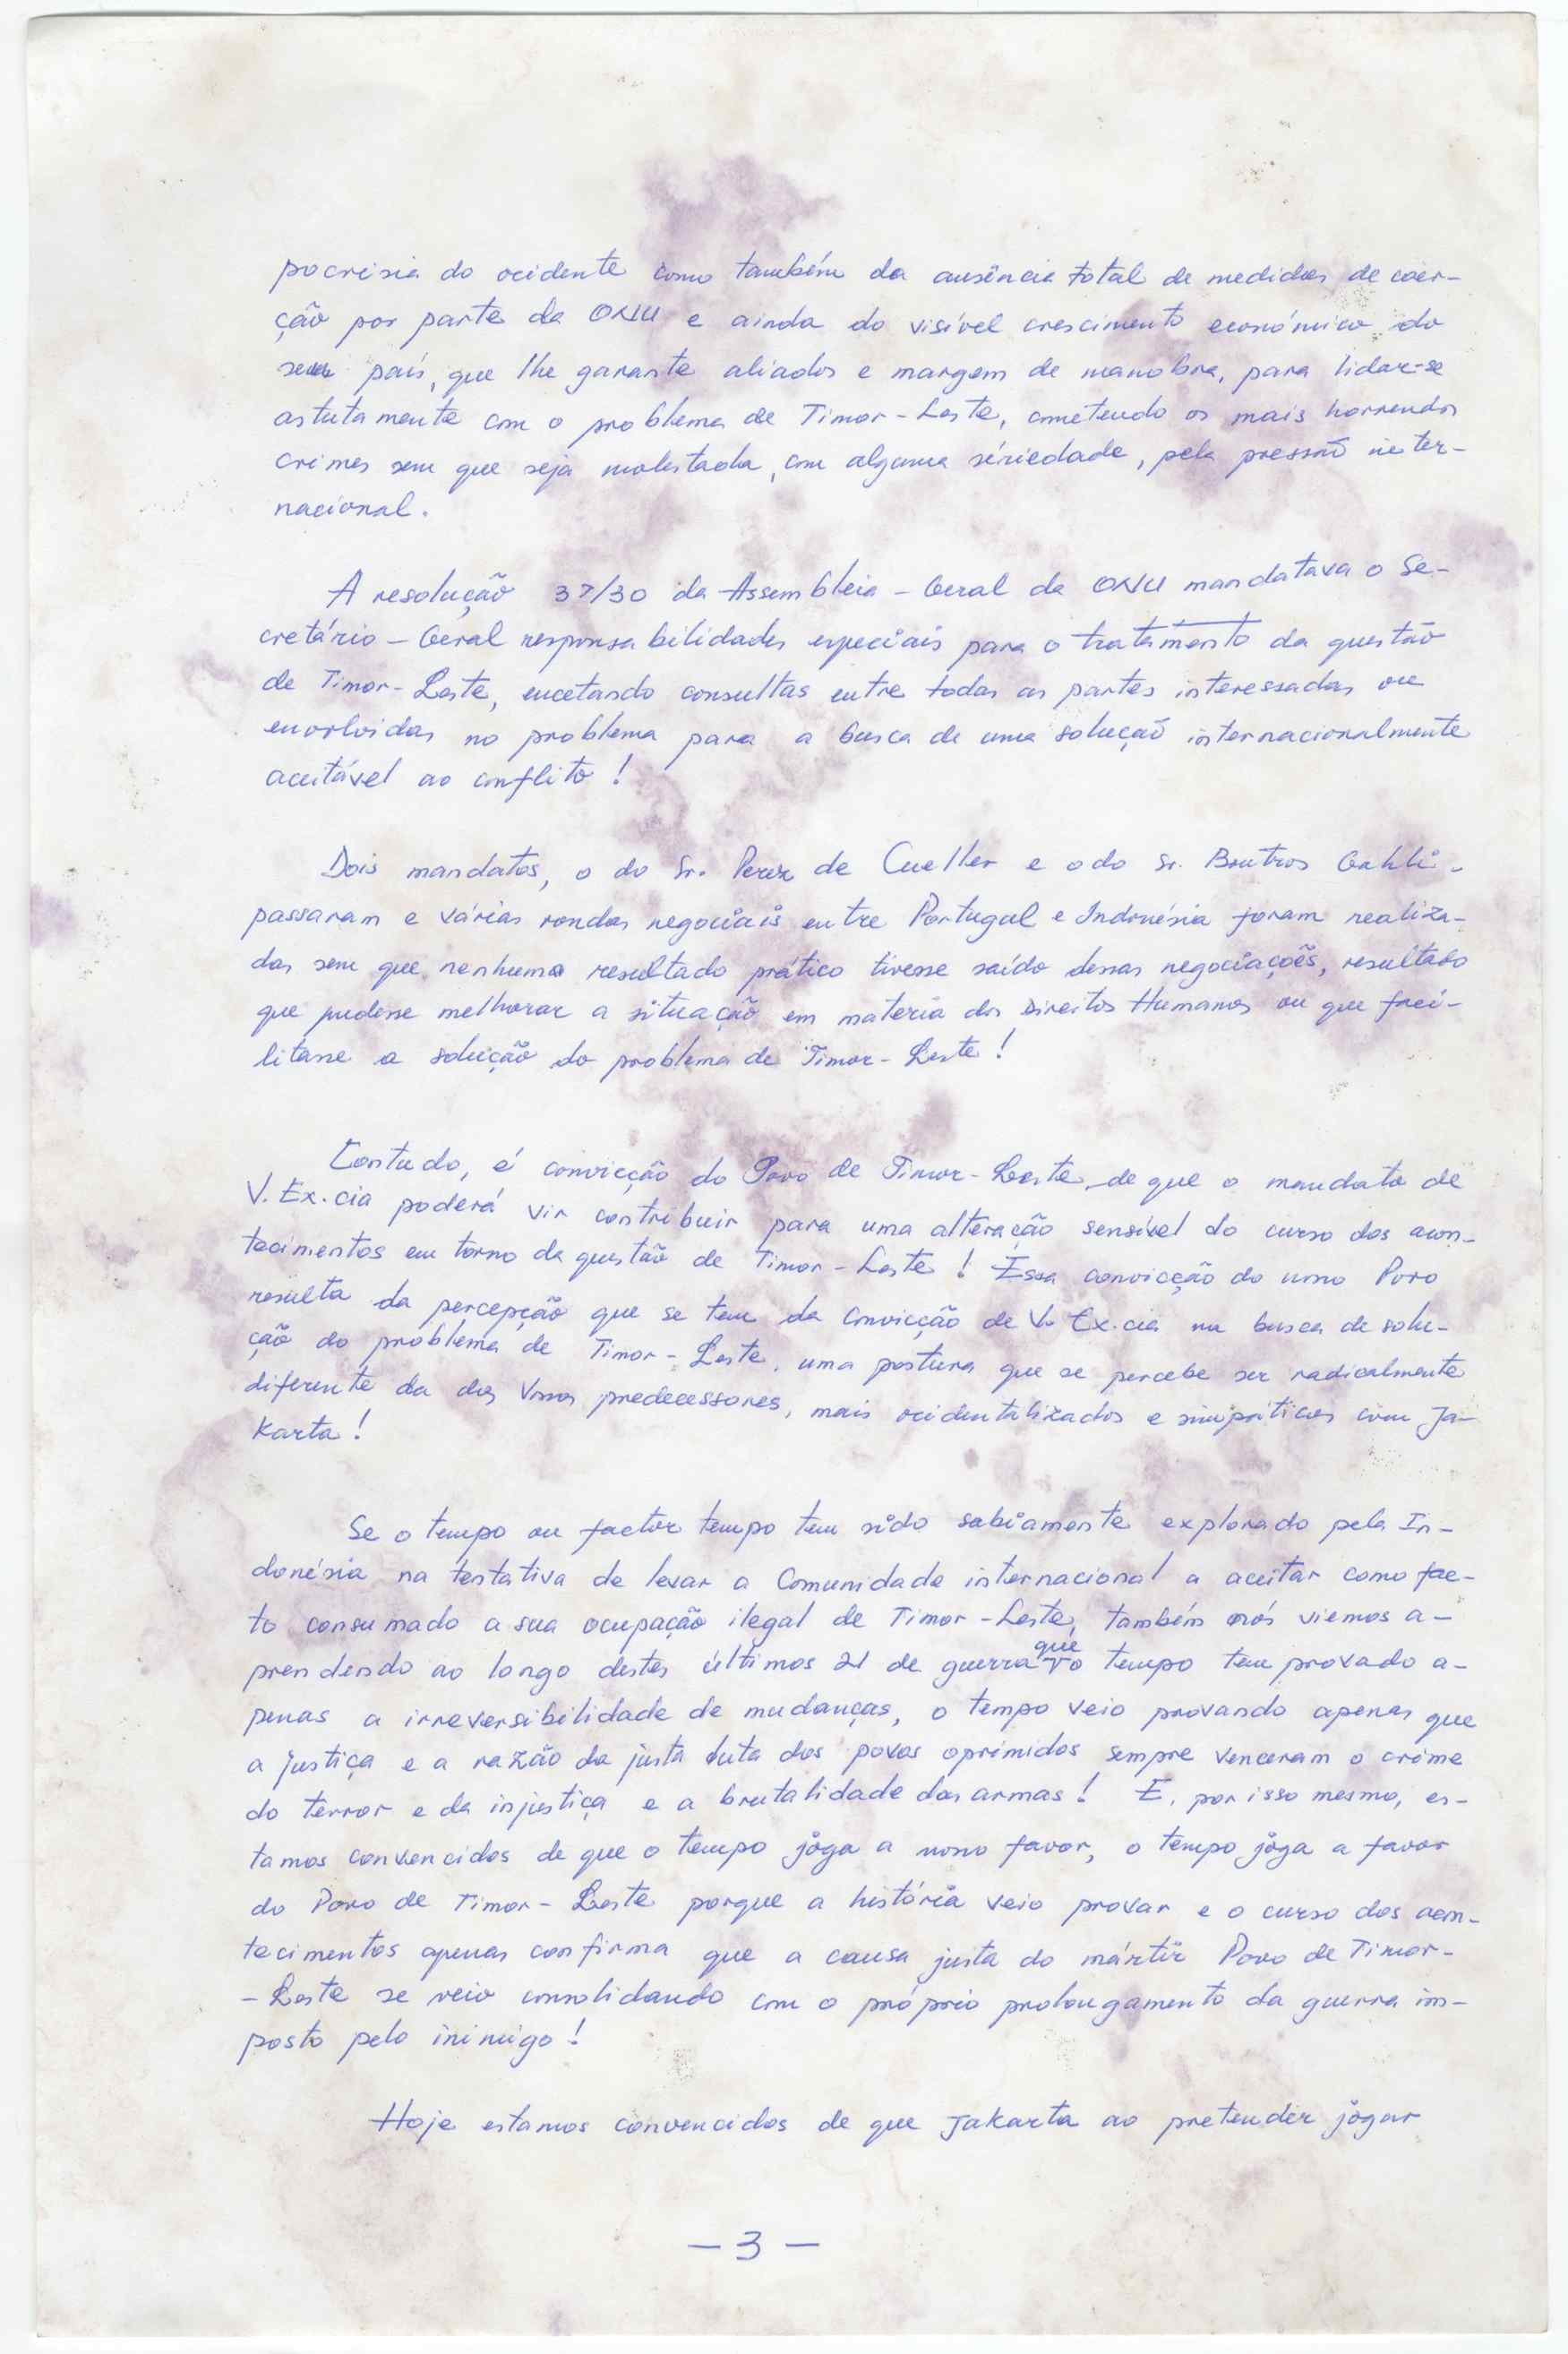 pocrisia do ocidente como também da ausência total de medidas de coer-
ção por parte da ONU e ainda do visível crescimento económico do
seu país, que lhe garante aliados e margem de manobra, para lidar-se
astutamente com o problema de Timor-Leste, cometendo os mais horrendos
crimes sem que seja molestada, com alguma sériedade, pela pressão inter-
nacional.
A resolução 37/30 da Assembleia-Geral da ONU mandatava o Se-
cretário-Geral responsabilidades especiais para o tratamento da questão
de Timor-Leste, encetando consultas entre todas as partes interessadas ou
envolvidas no problema para a busca de uma solução internacionalmente
aceitável ao conflito!
Dois mandatos, o do Sr. Perez de Cueller e o do Sr. Boutros Gahli -
passaram e várias rondas negociais entre Portugal e Indonésia foram realiza-
das sem que nenhuma resultado prático tivesse saído dessas negociações, resultado
que pudesse melhorar a situação em materia dos Direitos Humanos ou que faci-
litasse a solução do problema de Timor-Leste!
Contudo, é convicção do Povo de Timor-Leste, de que o mandato de
V. Ex.cia poderá vir contribuir para uma alteração sensível do curso dos acon-
tecimentos em torno da questão de Timor-Leste! Essa convicção do nosso Povo
resulta da percepção que se tem da convicção de V. Ex.cia na busca de solu-
ção do problema de Timor-Leste, uma postura que se percebe ser radicalmente
diferente da dos Vossos predecessores, mais ocidentalizados e simpáticos com Ja-
karta!
Se o tempo ou factor tempo tem sido sabiamente explorado pela In-
donésia na tentativa de levar a Comunidade internacional a aceitar como fac-
to consumado a sua ocupação ilegal de Timor-Leste, também nós viemos a-
prendendo ao longo destes últimos 21 de guerra que o tempo tem provado a-
penas a irreversibilidade de mudanças, o tempo veio provando apenas que
a justiça e a razão da justa luta dos povos oprimidos sempre venceram o crime
do terror e da injustiça e a brutalidade das armas! E, por isso mesmo, es-
tamos convencidos de que o tempo joga a nosso favor, o tempo joga a favor
do Povo de Timor-Leste porque a história veio provar e o curso dos acon-
tecimentos apenas confirma que a causa justa do mártir Povo de Timor-
-Leste se veio consolidando com o próprio prolongamento da guerra im-
posto pelo inimigo!
Hoje estamos convencidos de que Jakarta ao pretender jogar
- 3 -